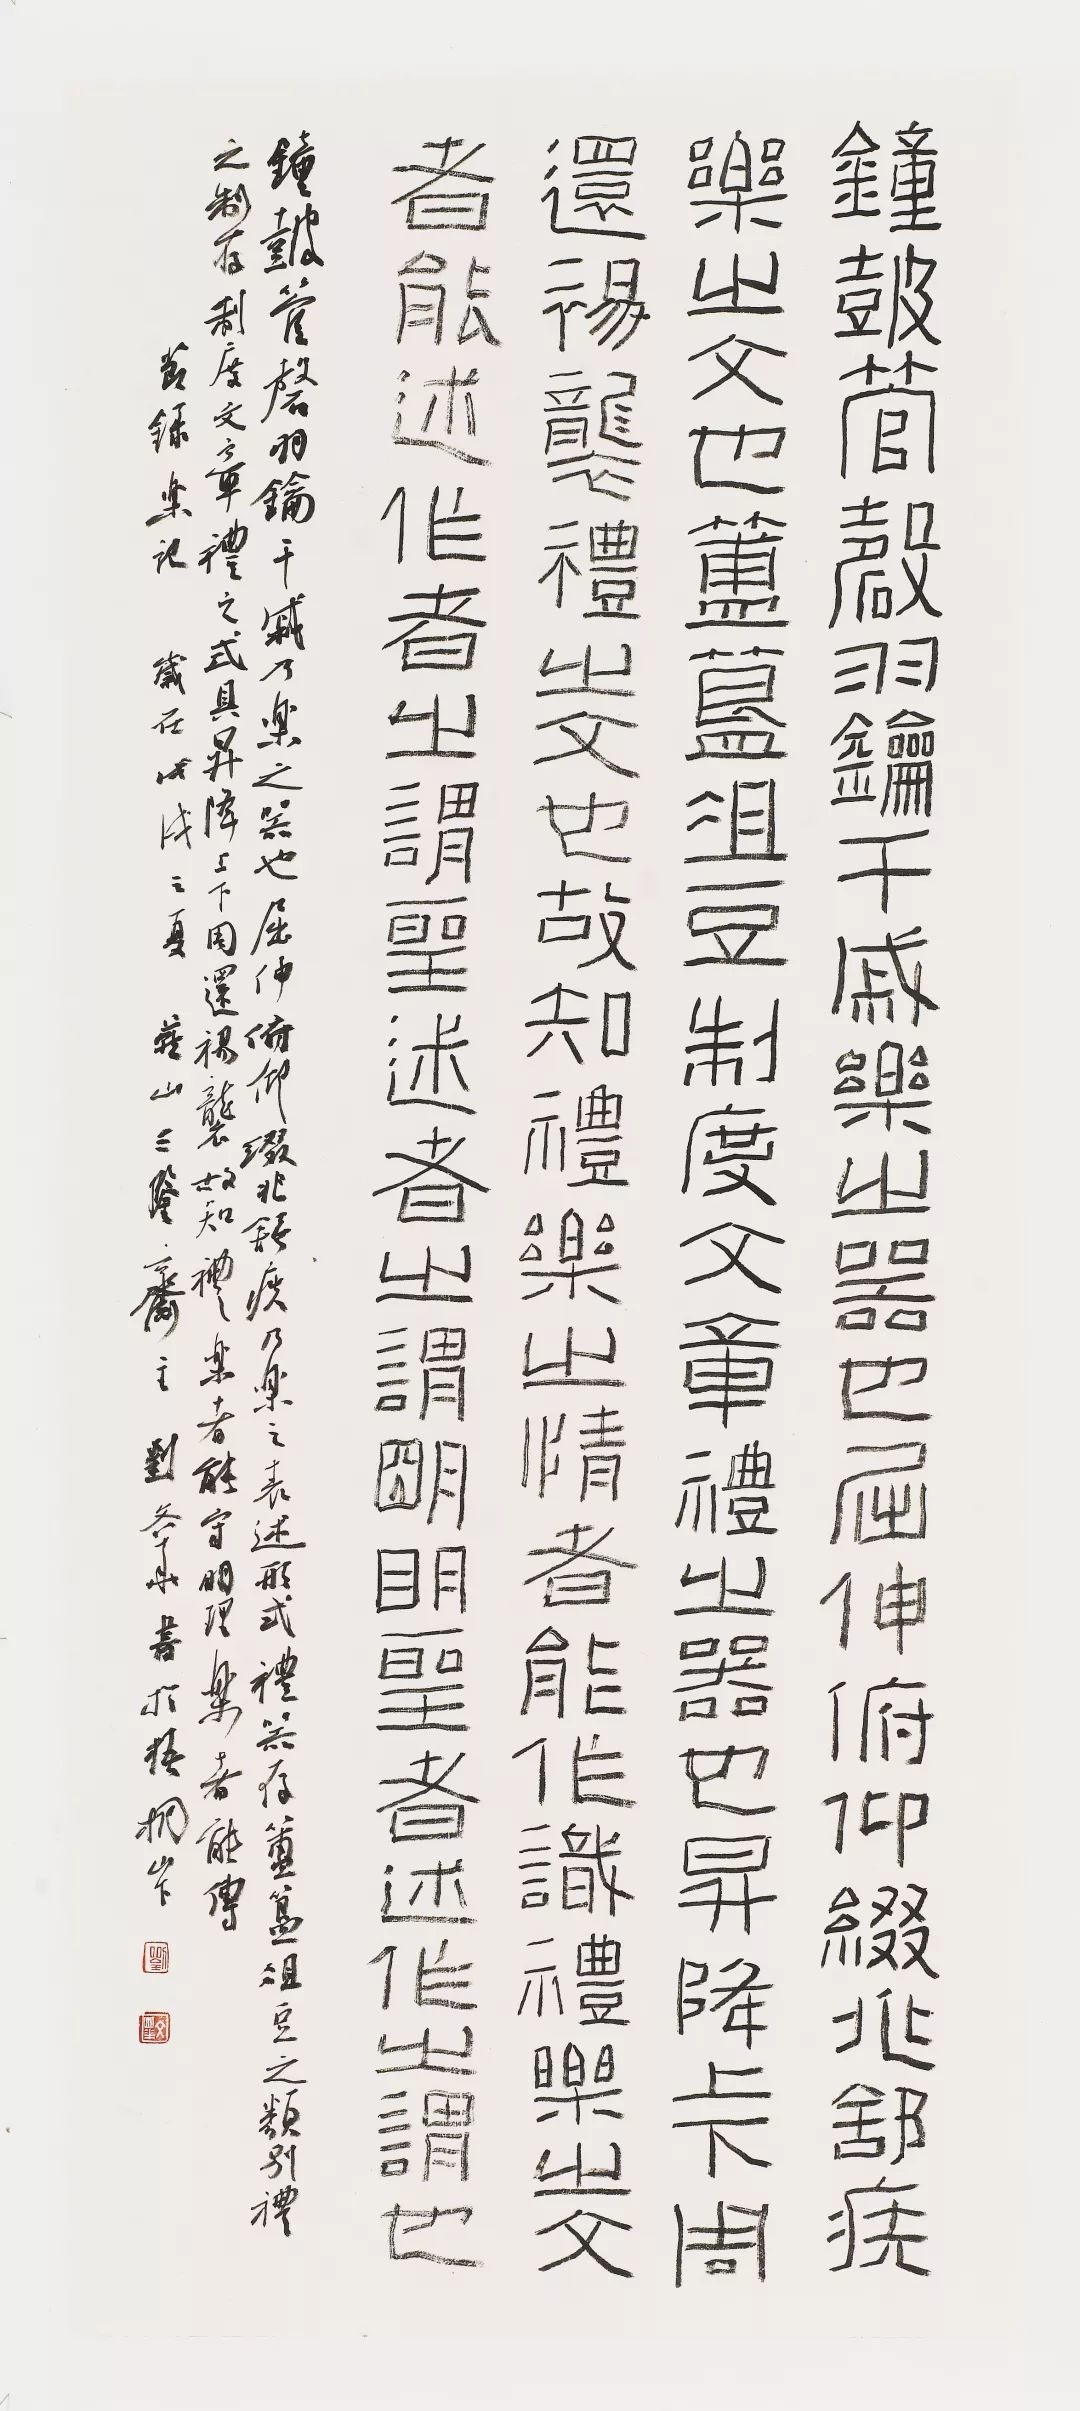 鐘鼓管磬羽鑰干戚樂之器也屈伸俯仰綴兆舒疾
樂之文也簠簋俎豆制度文章禮之器也昇降上下周
還裼襲禮之文也故知禮樂之情者能作識禮樂之文
者能述作者之謂聖述者之謂明明聖者述作之謂也
鐘鼓管磬羽鑰干戚乃樂之器也屈伸俯仰綴兆舒疾乃樂之表述形式禮器存簠簋俎豆之類別禮
之制存制度文章禮之式具昇降上下周還裼襲故知禮之樂者能守明理樂者能傳
節錄樂記 歲在戊戌之夏 山三隆齋主 劉 書於梧桐